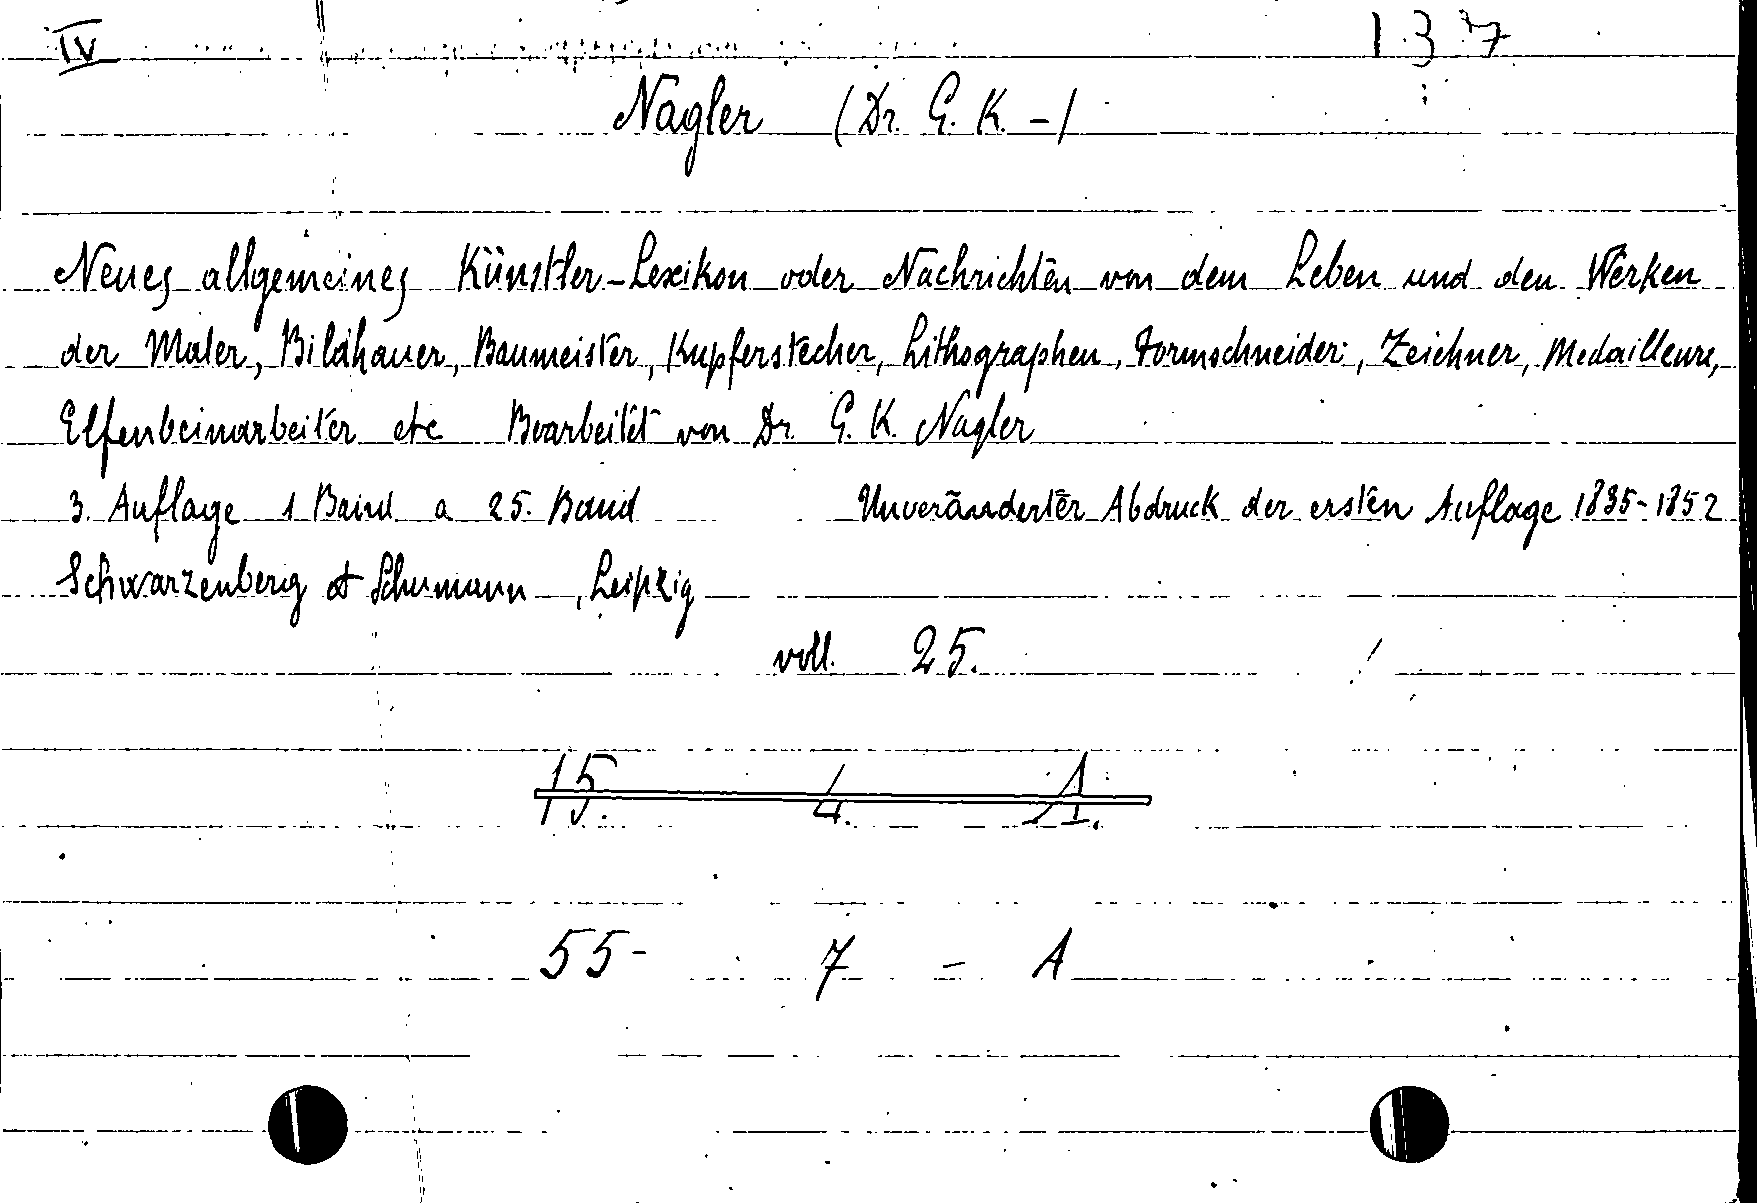 IV 137
Nagler (Dr. G. K. -)
Neues allgemeines Künstler-Lexikon oder Nachrichten von dem Leben und den Werken
der Maler, Bildhauer, Baumeister, Kupferstecher, Lithographen, Formschneider, Zeichner, Medailleure,
Elfenbeinarbeiter etc Bearbeitet von Dr. G. K. Nagler
3. Auflage 1 Band a 25. Band Unveränderter Abdruck der ersten Auflage 1835-1852
Schwarzenberg & Schumann, Leipzig
voll. 25.
15. 4. A.
55- 7 - A